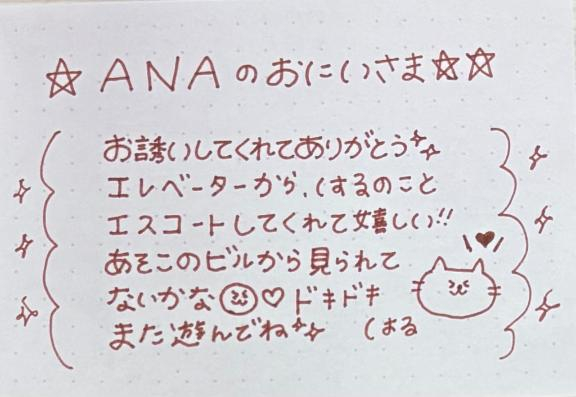 ☆ANAのおにいさま☆☆
お誘いしてくれてありがとう
エレベーターから、はるのこと
エスコートしてくれて嬉しい!!
あそこのビルから見られて
ないかな♡ドキドキ
また遊んでね はる